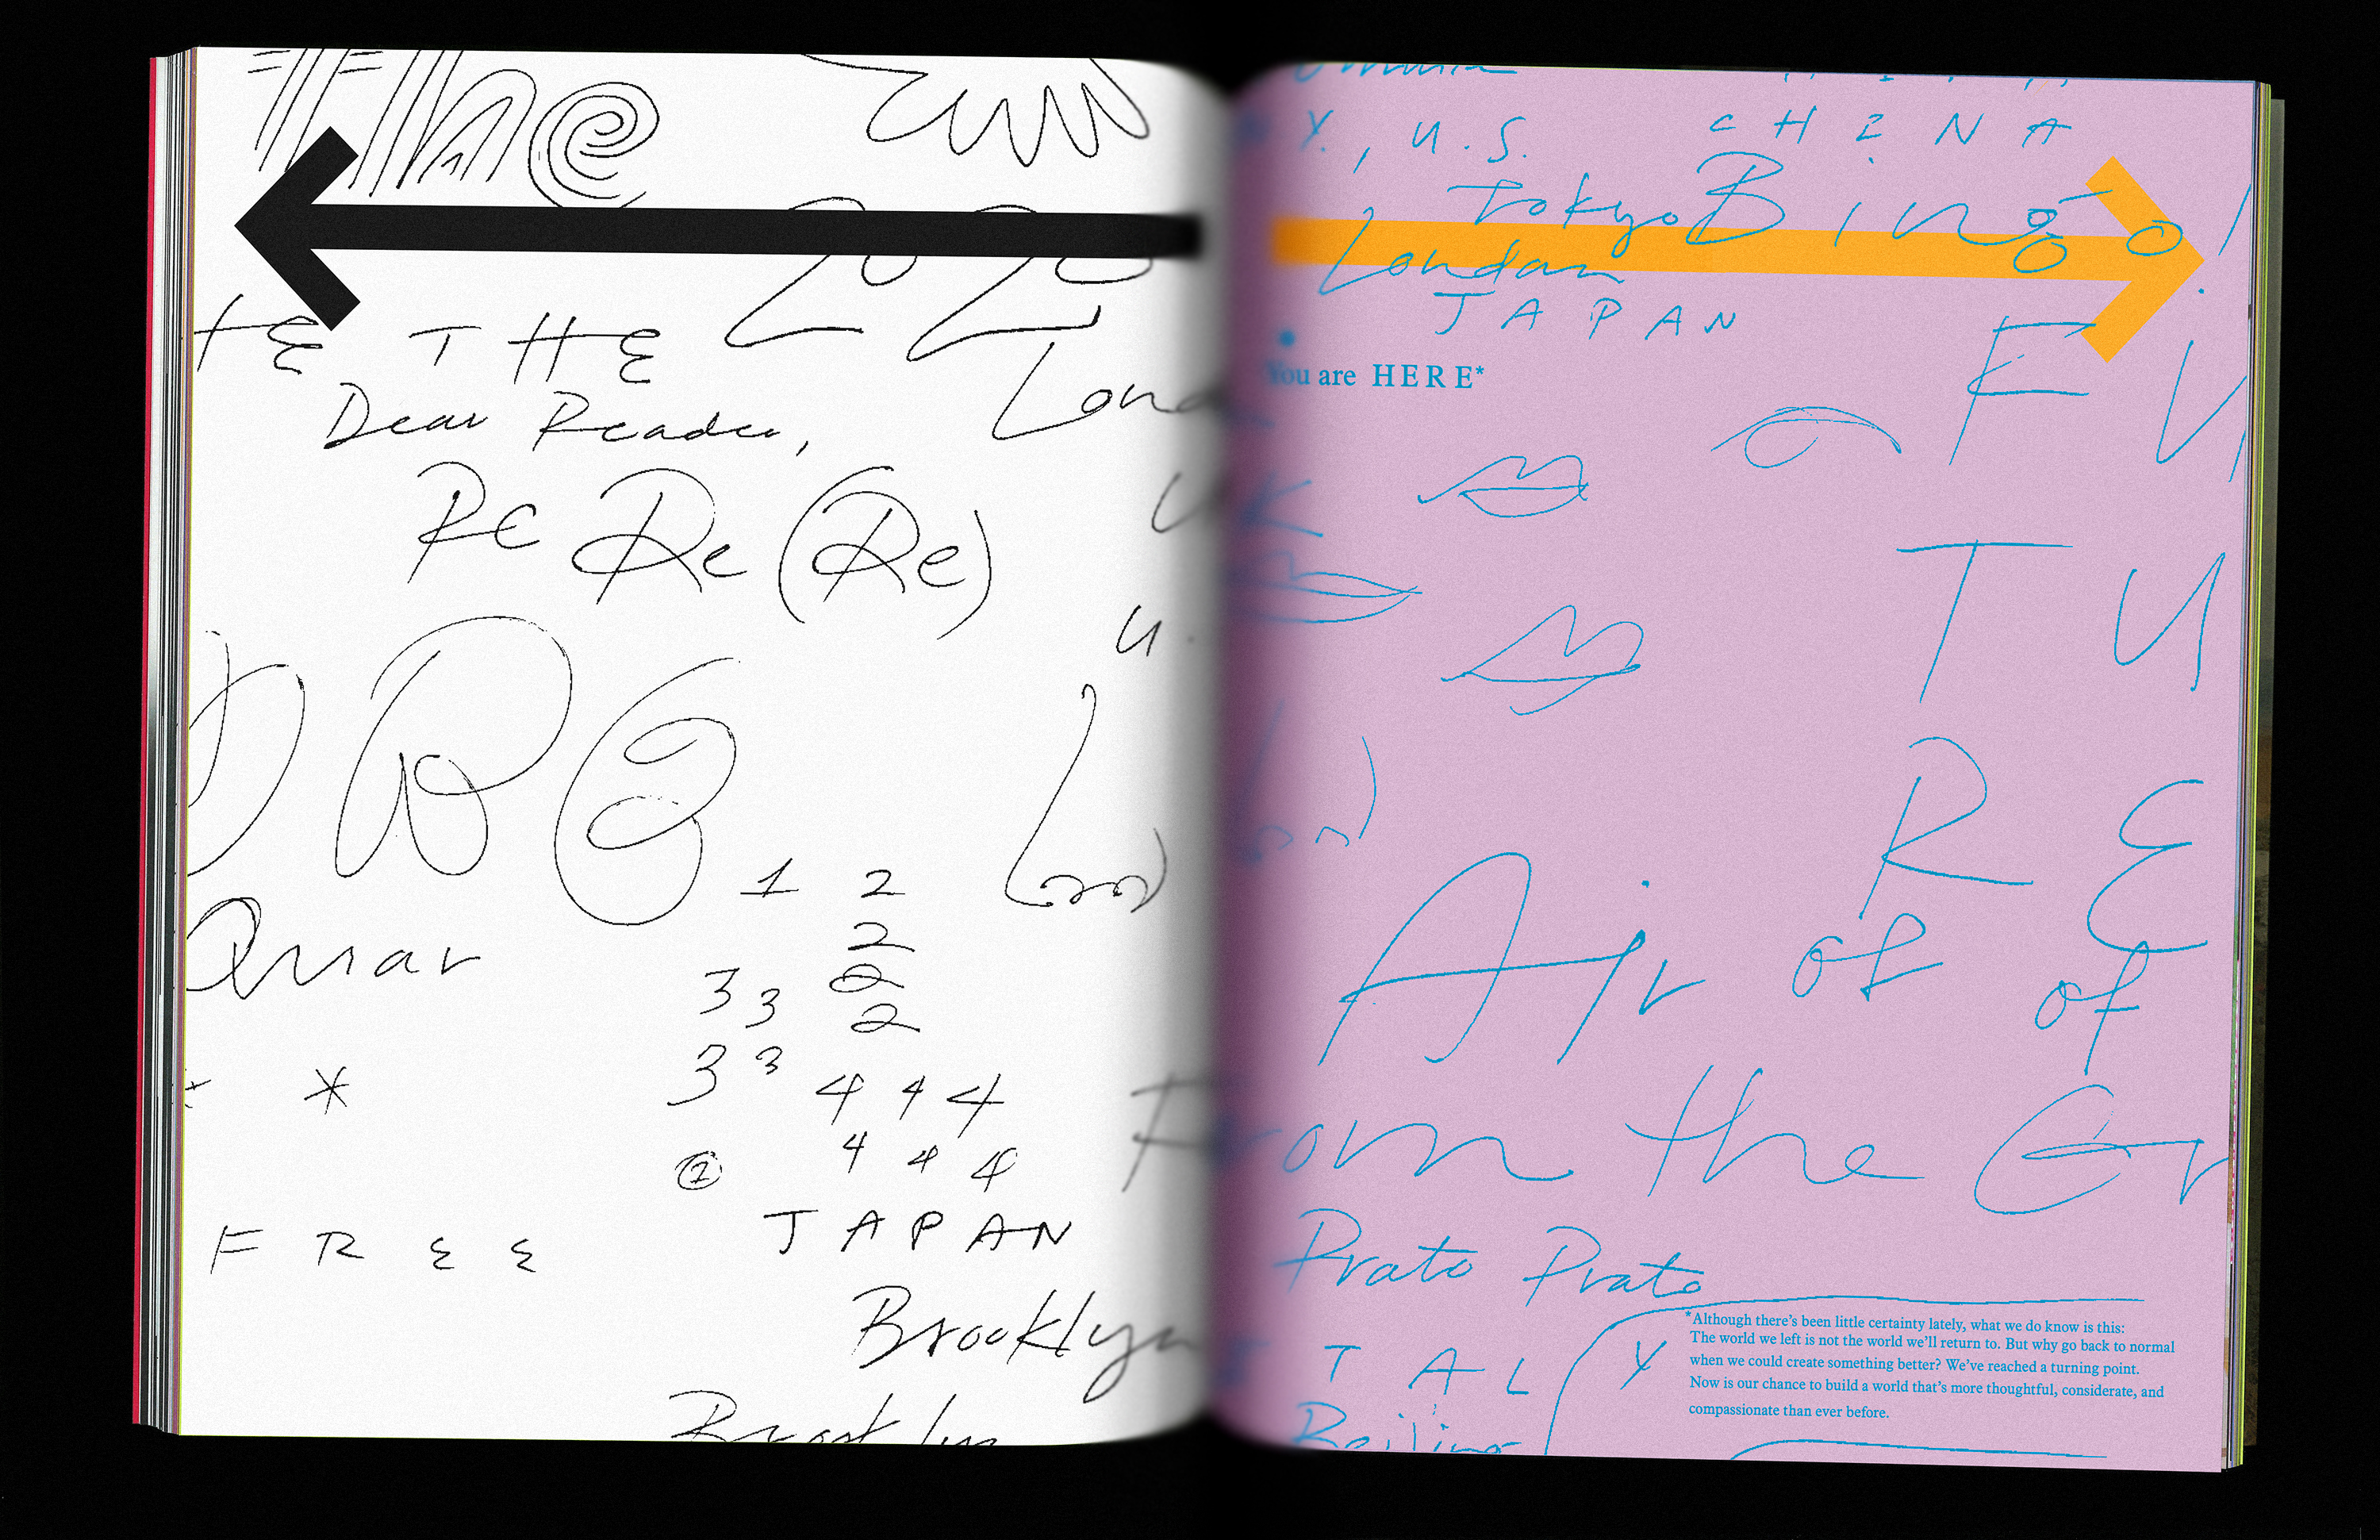 The
2020
THE THE
Dear Reader,
Re Re (Re)
Re
1 2
2
Quar
3 3 2
2
3 3 4 4 4
* *
② 4 4 4
JAPAN
FREE
Brooklyn
Brooklyn
Y., U.S. CHINA
Tokyo Bingo!
London
JAPAN
You are HERE*
London
UK
FU
TU
RE
Air of of
From the
Prato Prato
ITALY
Beijing
*Although there’s been little certainty lately, what we do know is this:
The world we left is not the world we’ll return to. But why go back to normal
when we could create something better? We’ve reached a turning point.
Now is our chance to build a world that’s more thoughtful, considerate, and
compassionate than ever before.